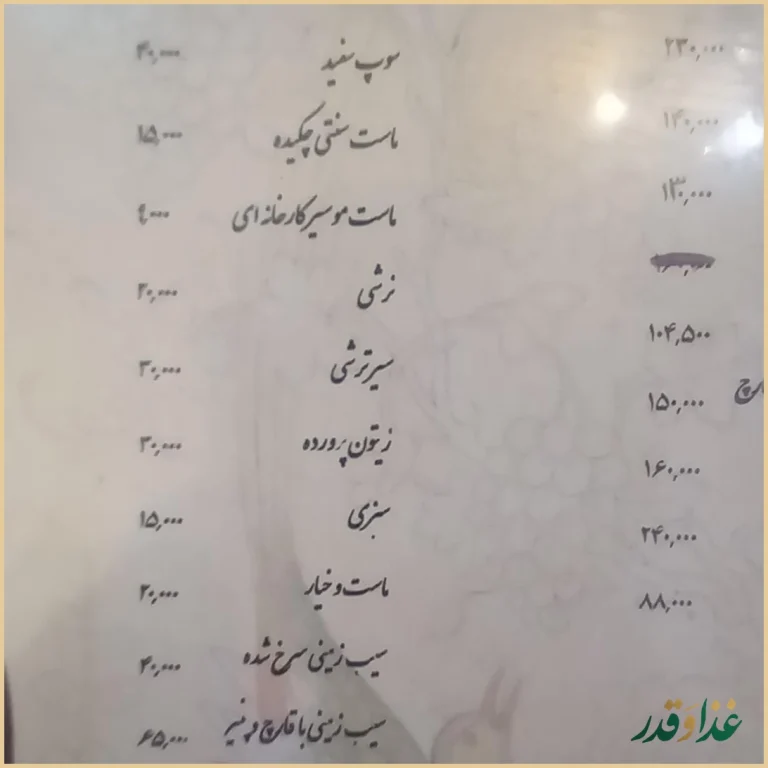 ۲۳۰,۰۰۰
۱۴۰,۰۰۰
۱۳۰,۰۰۰
۱۰۴,۵۰۰
۱۵۰,۰۰۰
۱۶۰,۰۰۰
۲۴۰,۰۰۰
۸۸,۰۰۰
سوپ سفید ۴۰,۰۰۰
ماست سنتی چکیده ۱۵,۰۰۰
ماست موسیر کارخانه ای ۹,۰۰۰
ترشی ۲۰,۰۰۰
سیر ترشی ۳۰,۰۰۰
زیتون پرورده ۳۰,۰۰۰
سبزی ۱۵,۰۰۰
ماست و خیار ۲۰,۰۰۰
سیب زمینی سرخ شده ۴۰,۰۰۰
سیب زمینی با قارچ و پنیر ۶۵,۰۰۰
غذا و قدر